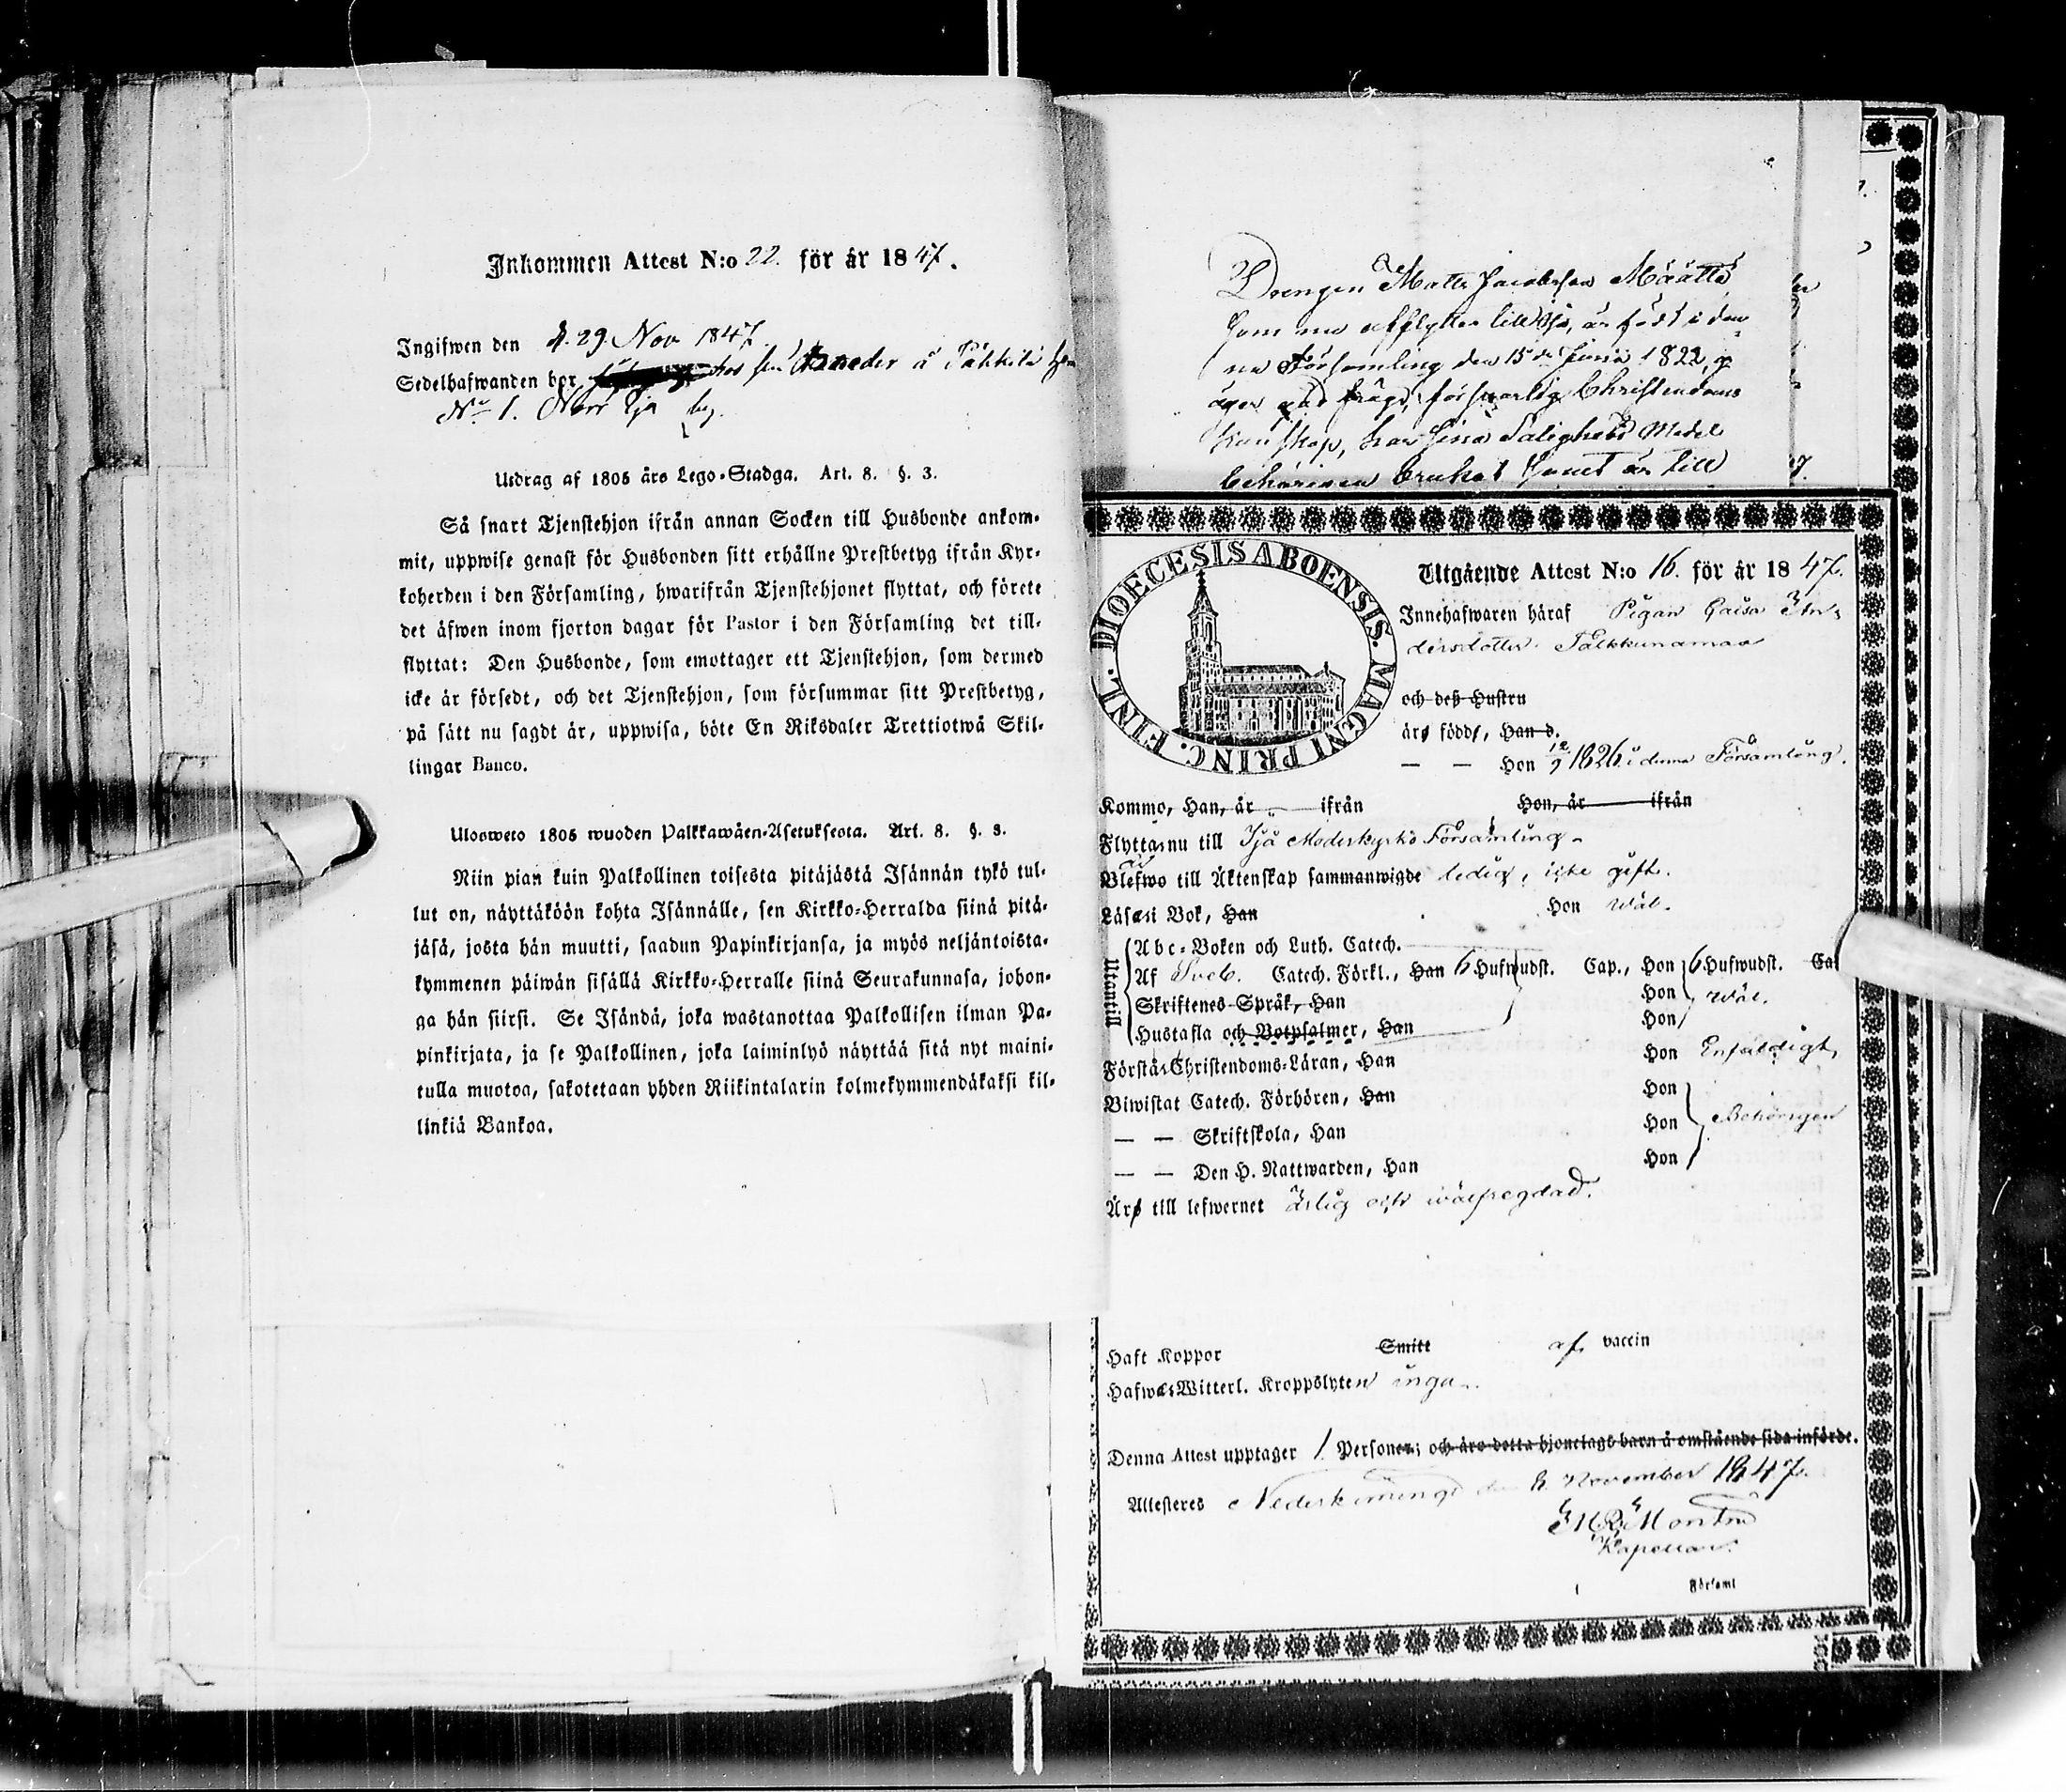 Inkommen Attest N:o 22. för år 1847.
Ingifwen den d. 29. Nov 1847.
Sedelhafwanden bor hos sin å Pähkilä
No 1. Norr Ijo by.
Utdrag af 1805 års Lego-Stadga. Art. 8. §. 3.
Så snart Tjenstehjon ifrån annan Socken till Husbonde ankom-
mit, uppwise genast för Husbonden sitt erhållne Prestbetyg ifrån Kyr-
koherden i den Församling, hwarifrån Tjenstehjonet flyttat, och förete
det äfwen inom fjorton dagar för Pastor i den Församling det till-
flyttat: Den Husbonde, som emottager ett Tjenstehjon, som dermed
icke är försedt, och det Tjenstehjon, som försummar sitt Prestbetyg,
på sätt nu sagdt är, uppwisa, böte En Riksdaler Trettiotwå Skil-
lingar Banco.
Ulosweto 1805 wuoden Palkkawäen-Asetuksesta. Art. 8. §. 3.
Niin pian kuin Palkollinen toisesta pitäjästä Isännän tykö tul-
lut on, näyttäköön kohta Isännälle, sen Kirkko-Herralda siinä pitä-
jäsä, josta hän muutti, saadun Papinkirjansa, ja myös neljäntoista-
kymmenen päiwän sisällä Kirkko-Herralle siinä Seurakunnasa, johon-
ga hän siirsi. Se Isändä, joka wastanottaa Palkollisen ilman Pa-
pinkirjata, ja se Palkollinen, joka laiminlyö näyttää sitä nyt maini-
tulla muotoa, sakotetaan yhden Riikintalarin kolmekymmendäkaksi kil-
linkiä Bankoa.
Drengen Matts Jacobsson Määttä
som nu afflyttar till Ijo, är född i den-
na Församling den 15de Junii 1822,
äger god frägd, försvarlig Christendoms
kunskap, har sina Salighets Medel
behörigen brukat samt är till
DIOECESIS ABOENSIS. MAGNI PRINC. FINL.
Utgående Attest N:o 16. för år 1847.
Innehafwaren häraf Pigan Caisa An-
dersdotter Talkkunamaa
och deß Hustru
äro födde, Han d.
— — Hon 12/9 1826 i denna Församling.
Kommo, Han, år — ifrån Hon, år — ifrån
Flytta nu till Ijå Moderkyrko Församling.
Blefwo till Äktenskap sammanwigde ledig, icke gift.
Läsa i Bok, Han Hon wäl.
Utantill
Abc-Boken och Luth. Catech.
Af Sveb. Catech. Förkl., Han 6 Hufwudst. Cap., Hon 6 Hufwudst. Ca
Skriftenes Språk, Han Hon wäl.
Hustafla och Botpsalmer, Han Hon
Förstå Christendoms-Läran, Han Hon Enfaldigt,
Biwistat Catech. Förhören, Han Hon
— — Skriftskola, Han Hon Behörigen
— — Den H. Nattwarden, Han Hon
Äro till lefwernet ärlig och wälfregdad.
Haft Koppor Smitt af vaccin
Hafwa Witterl. Kroppslyten inga.
Denna Attest upptager 1 Personer; och äro detta hjonelags barn å omstående sida införde.
Attesteres Nederkiminge den 2 November 1847.
Kapellan.
Församl